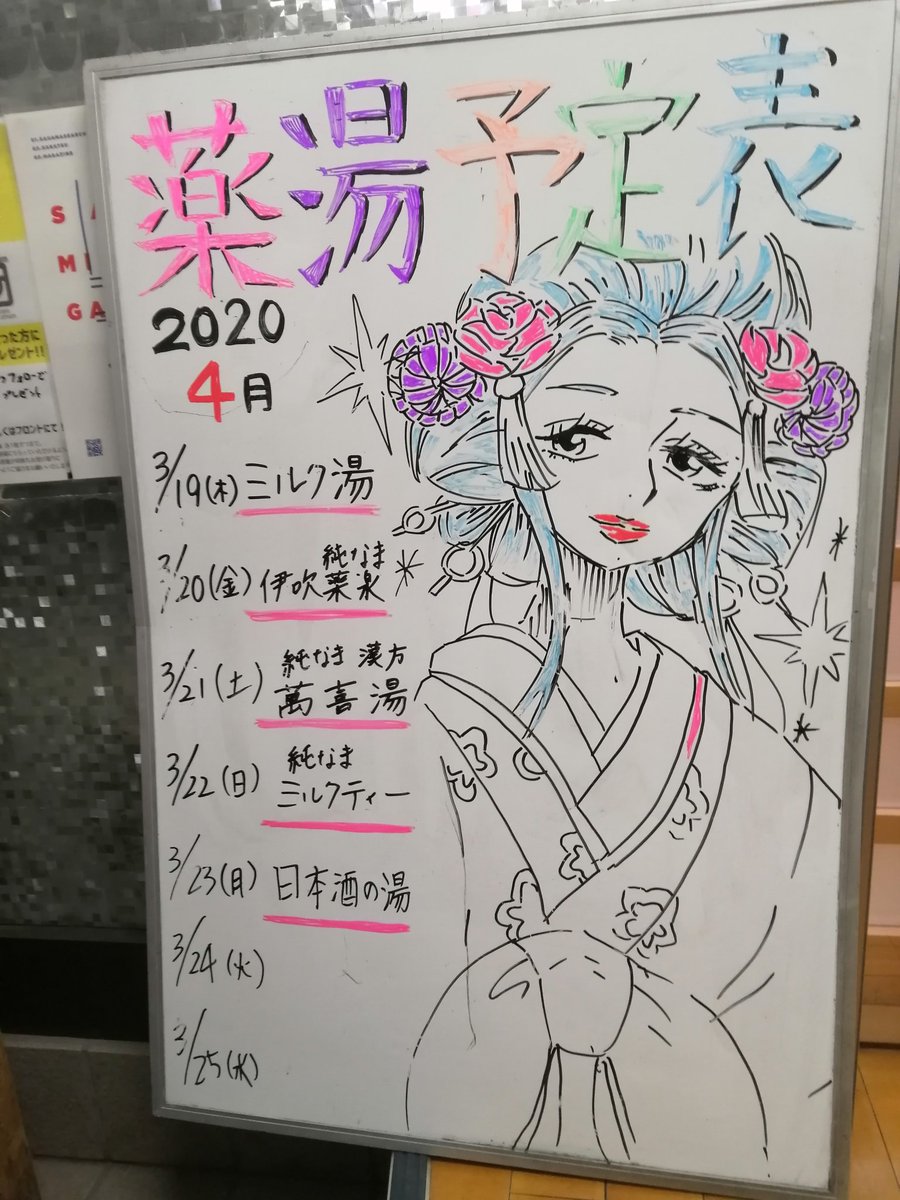 薬湯予定表
2020
4月
3/19(木) ミルク湯
純なま
3/20(金) 伊吹薬楽
純なま 漢方
3/21(土) 萬喜湯
純なま
3/22(日) ミルクティー
3/23(月) 日本酒の湯
3/24(火)
3/25(水)
S
M
GA
った方に
レゼント!!
フォローで
くはフロントにて!